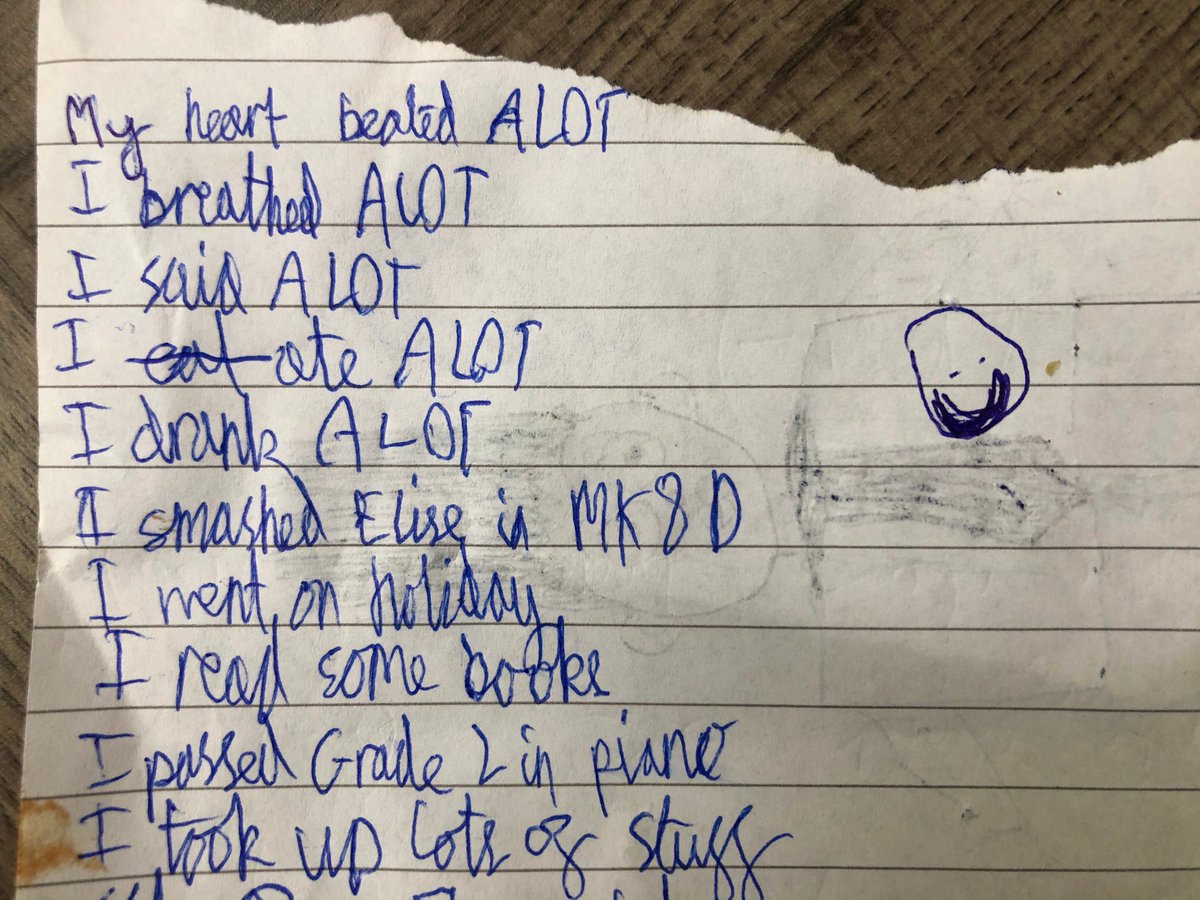 My heart beated ALOT
I breathed ALOT
I said ALOT
I eat ate ALOT
I drank ALOT
I smashed Elise in MK8D
I went on holiday
I read some books
I passed Grade 2 in piano
I took up lots of stuff